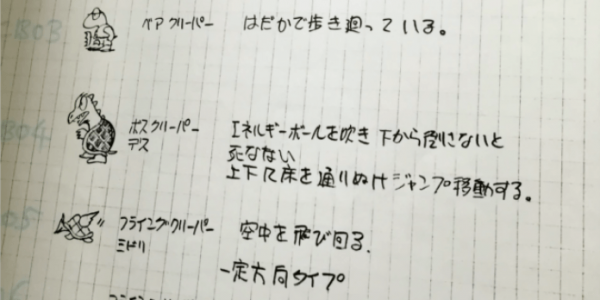 ベアクリーパー
はだかで歩き廻っている。
ボスクリーパー
デス
エネルギーボールを吹き 下から倒さないと
死なない
上下に床を通りぬけジャンプ移動する。
フライングクリーパー
ミドリ
空中を飛び回る。
一定方向タイプ